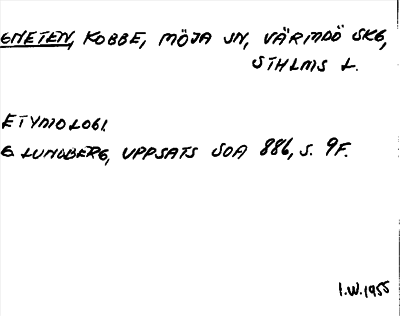 GNETEN, KOBBE, MÖJA SN, VÄRMDÖ SKG,
STHLMS L.
ETYMOLOGI.
G LUNDBERG, UPPSATS SOA 886, S. 9F.
I.W. 1955